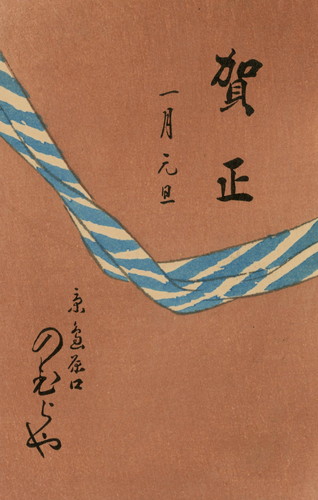 賀正
一月元旦
京島原口
のむらや